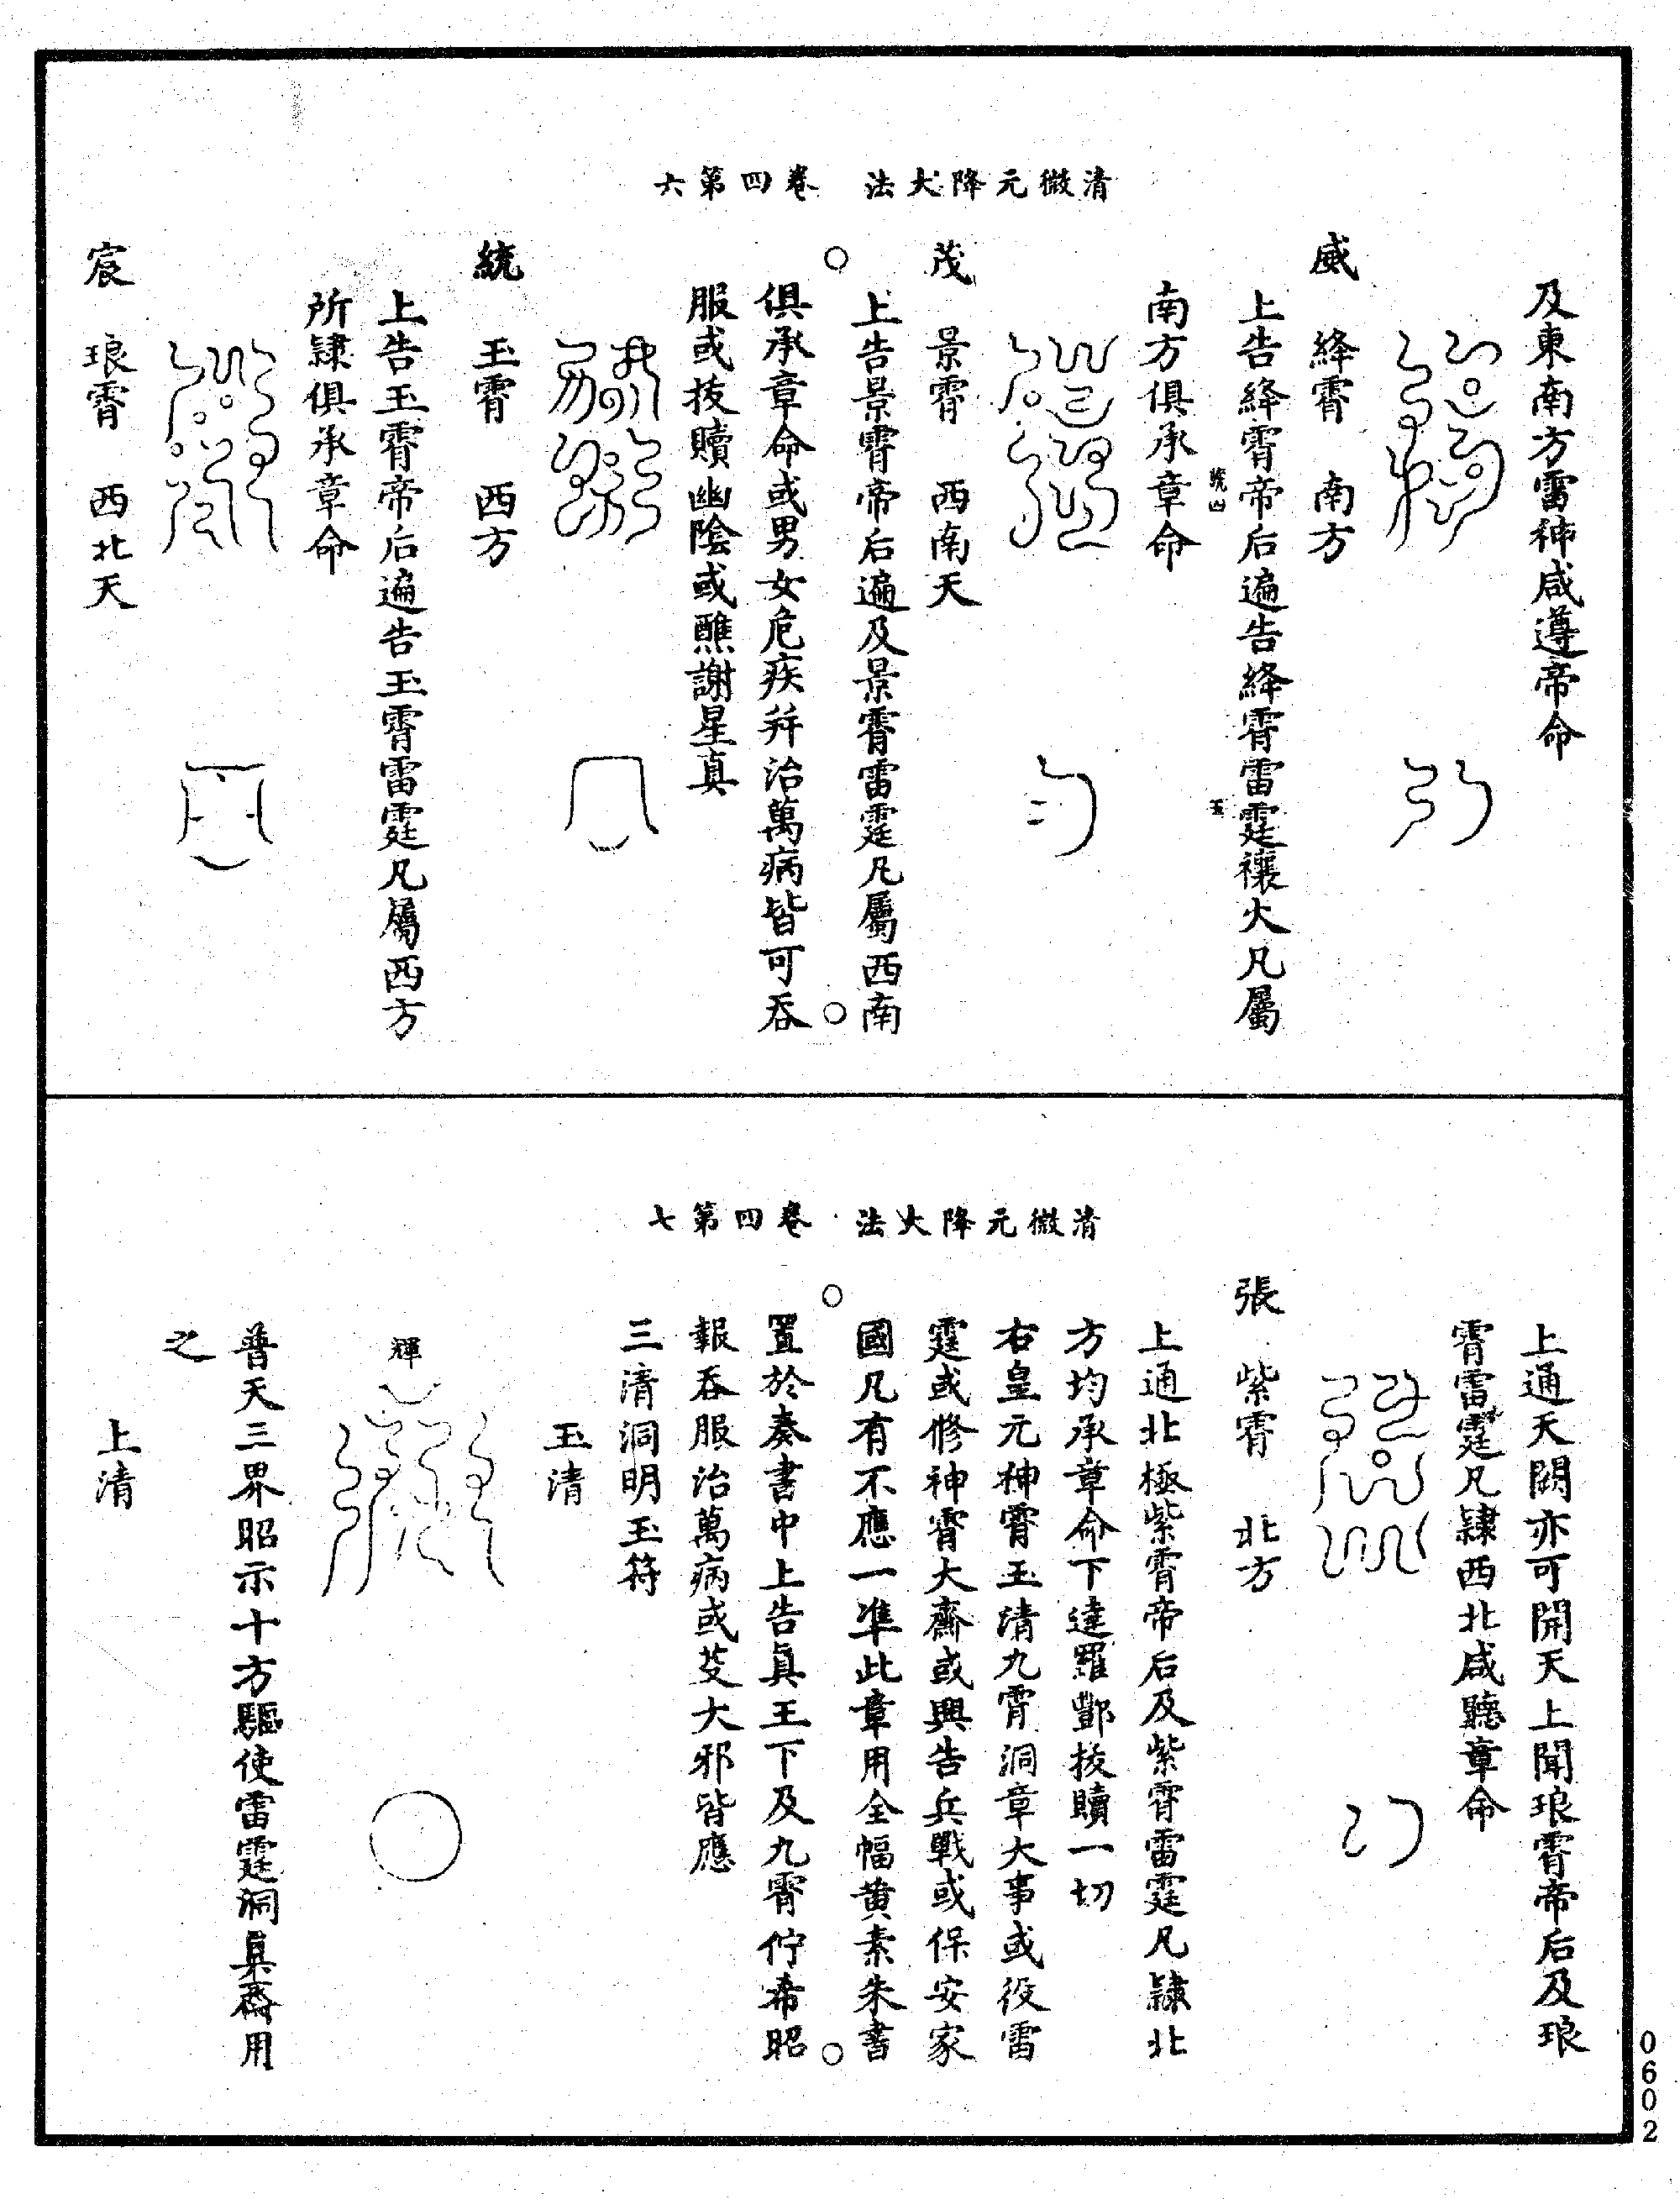 清微元降大法　卷四第六
及東南方雷神咸遵帝命
威　絳霄　南方
上告絳霄帝后遍告絳霄雷霆禳火凡屬
南方俱承章命
茂　景霄　西南天
上告景霄帝后遍及景霄雷霆凡屬西南
俱承章命或男女危疾并治萬病皆可吞
服或拔贖幽陰或醮謝星真
統　玉霄　西方
上告玉霄帝后遍告玉霄雷霆凡屬西方
所隸俱承章命
宸　琅霄　西北天
清微元降大法　卷四第七
上通天闕亦可開天上聞琅霄帝后及琅
霄雷霆凡隸西北咸聽章命
張　紫霄　北方
上通北極紫霄帝后及紫霄雷霆凡隸北
方均承章命下達羅酆拔贖一切
右皇元神霄玉清九霄洞章大事或役雷
霆或修神霄大齋或興告兵戰或保安家
國凡有不應一準此章用全幅黃素朱書
置於奏書中上告真王下及九霄佇希昭
報吞服治萬病或芟大邪皆應
三清洞明玉符
玉清
輝
普天三界昭示十方驅使雷霆洞真齋用
之
上清
0602